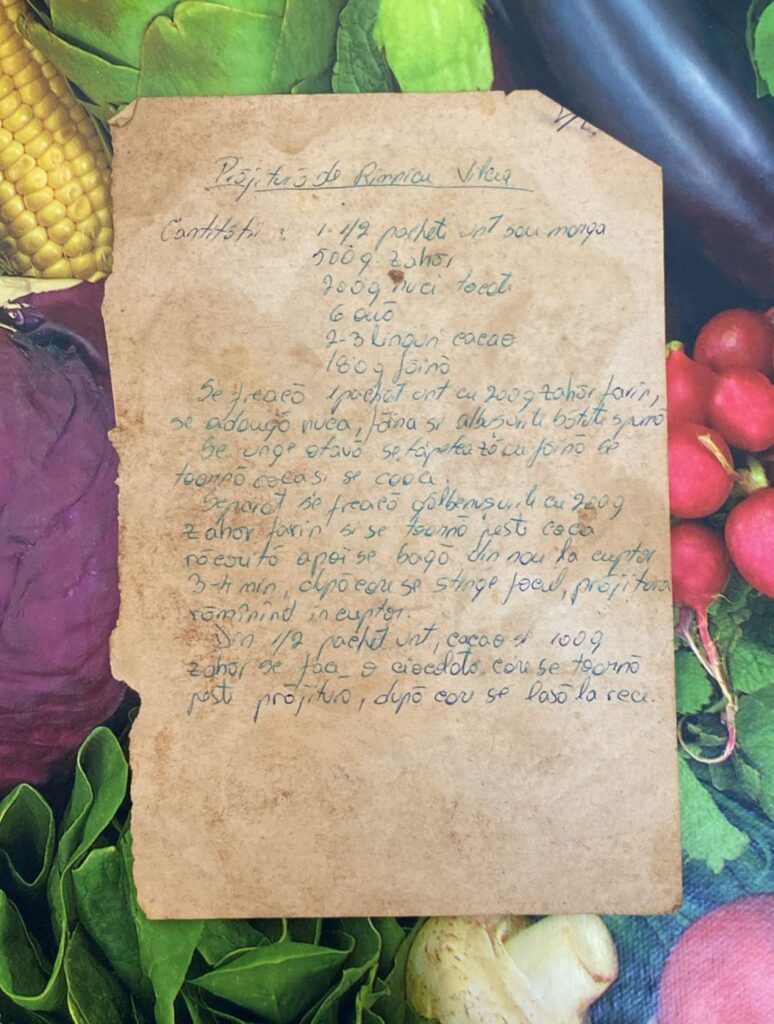 Prăjitură de Rîmnicu Vilcea
Cantități : 1 1/2 pachete unt sau marga
500 g zahăr
200 g nuci tocate
6 ouă
2-3 linguri cacao
180 g făină
Se freacă 1 pachet unt cu 200 g zahăr farin,
se adaugă nuca, făina si albusurile bătute spumă
Se unge o tavă se tapetează cu făină se
toarnă coca si se coace.
Separat se freacă gălbenusurile cu 200 g
zahăr farin si se toarnă peste coca
răcorită apoi se bagă din nou la cuptor
3-4 min, după care se stinge focul, prăjitura
rămînînd in cuptor.
Din 1/2 pachet unt, cacao si 100 g
zahăr se face o ciocolată care se toarnă
peste prăjitură, după care se lasă la rece.